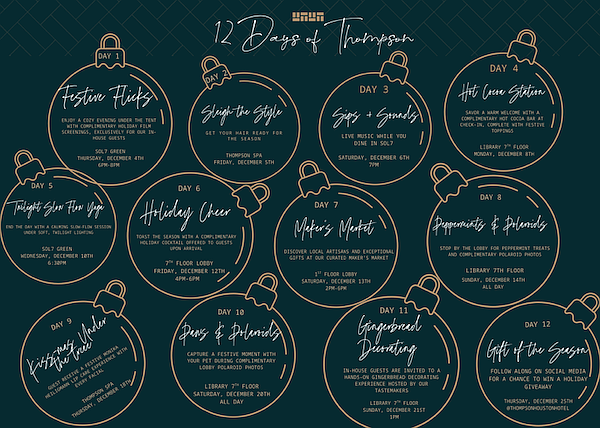 12 Days of Thompson
DAY 1
Festive Flicks
ENJOY A COZY EVENING UNDER THE TENT
WITH COMPLIMENTARY HOLIDAY FILM
SCREENINGS, EXCLUSIVELY FOR OUR IN-
HOUSE GUESTS
SOL7 GREEN
THURSDAY, DECEMBER 4TH
6PM-8PM
DAY 2
Sleigh the Style
GET YOUR HAIR READY FOR
THE SEASON
THOMPSON SPA
FRIDAY, DECEMBER 5TH
DAY 3
Sips + Sounds
LIVE MUSIC WHILE YOU
DINE IN SOL7
SATURDAY, DECEMBER 6TH
7PM
DAY 4
Hot Cocoa Station
SAVOR A WARM WELCOME WITH A
COMPLIMENTARY HOT COCOA BAR AT
CHECK-IN, COMPLETE WITH FESTIVE
TOPPINGS
LIBRARY 7TH FLOOR
MONDAY, DECEMBER 8TH
DAY 5
Twilight Slow Flow Yoga
END THE DAY WITH A CALMING SLOW-FLOW SESSION
UNDER SOFT, TWILIGHT LIGHTING
SOL7 GREEN
WEDNESDAY, DECEMBER 10TH
6:30PM
DAY 6
Holiday Cheer
TOAST THE SEASON WITH A COMPLIMENTARY
HOLIDAY COCKTAIL OFFERED TO GUESTS
UPON ARRIVAL
7TH FLOOR LOBBY
FRIDAY, DECEMBER 12TH
4PM-6PM
DAY 7
Maker's Market
DISCOVER LOCAL ARTISANS AND EXCEPTIONAL
GIFTS AT OUR CURATED MAKER'S MARKET
1ST FLOOR LOBBY
SATURDAY, DECEMBER 13TH
2PM-6PM
DAY 8
Peppermints & Polaroids
STOP BY THE LOBBY FOR PEPPERMINT TREATS
AND COMPLIMENTARY POLAROID PHOTOS
LIBRARY 7TH FLOOR
SUNDAY, DECEMBER 14TH
ALL DAY
DAY 9
Kissmas Under
the Tree
GUEST RECEIVE A FESTIVE
LIP CARE EXPERIENCE WITH
EVERY FACIAL
THOMPSON SPA
THURSDAY, DECEMBER 18TH
DAY 10
Paws & Polaroids
CAPTURE A FESTIVE MOMENT WITH
YOUR PET DURING COMPLIMENTARY
LOBBY POLAROID PHOTOS
LIBRARY 7TH FLOOR
SATURDAY, DECEMBER 20TH
ALL DAY
DAY 11
Gingerbread
Decorating
IN-HOUSE GUESTS ARE INVITED TO A
HANDS-ON GINGERBREAD DECORATING
EXPERIENCE HOSTED BY OUR
TASTEMAKERS
LIBRARY 7TH FLOOR
SUNDAY, DECEMBER 21ST
1PM
DAY 12
Gift of the Season
FOLLOW ALONG ON SOCIAL MEDIA
FOR A CHANCE TO WIN A HOLIDAY
GIVEAWAY
THURSDAY, DECEMBER 25TH
@THOMPSONHOUSTONHOTEL